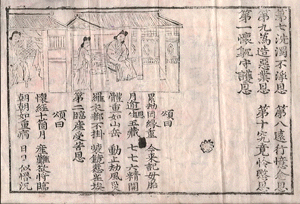 第七洗濁不淨恩 第八遠行憶念恩
第九為造惡業恩 第十究竟憐愍恩
第一懷躭守護恩
頌曰
累劫因緣重 今來託母胎
月逾生五臟 七七六精開
體重如山岳 動止劫風災
羅衣都不掛 裝鏡惹塵埃
第二臨產受苦恩
頌曰
懷經十箇月 產難臨
朝朝如重病 日日似惛沉